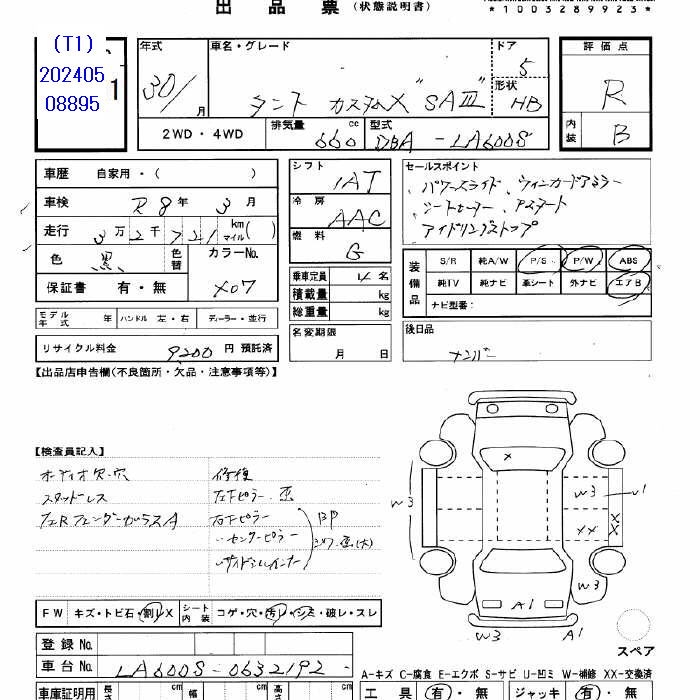 出品票(状態説明書)
*1003289923*
(T1)
202405
08895
1
年式
30/
月
車名・グレード
タント カスタムX "SAⅢ"
ドア
5
形状
HB
評価点
R
内装
B
2WD・4WD
排気量
660
cc
型式
DBA-LA600S
車歴 自家用・( )
車検 R8年 3月
走行 3万2千721
km
マイル
( )
色 黒
色替
カラーNo.
X07
保証書 有・無
シフト
IAT
冷房
AAC
燃料
G
セールスポイント
パワースライド、ウィンカードアミラー
シートヒーター、Pスタート
アイドリングストップ
装備品
S/R 純A/W P/S P/W ABS
純TV 純ナビ 革シート 外ナビ エアB
ナビ型番:
乗車定員 4名
積載量 kg
総重量 kg
モデル年式 年
ハンドル 左・右
ディーラー・並行
名変期限
月 日
後日品
ナンバー
リサイクル料金 9200 円 預託済
【出品店申告欄(不良箇所・欠品・注意事項等)】
【検査員記入】
オーディオ欠・穴
スタッドレス
左Rフェンダーガラス A
修復
左Fピラー 歪
右Fピラー
〃センターピラー
〃サイドシルインナー
BP
W3
W3
U1
XX
X
X
X
W3
A1
W3
A1
スペア
FW キズ・トビ石・割レX
シート内装
コゲ・穴・汚レ・シミ・破レ・スレ
登録No.
車台No. LA600S-0632192-
A-キズ C-腐食 E-エクボ S-サビ U-凹ミ W-補修 XX-交換済
車庫証明用
長さ
cm
幅
cm
高さ
cm
工具 有・無
ジャッキ 有・無